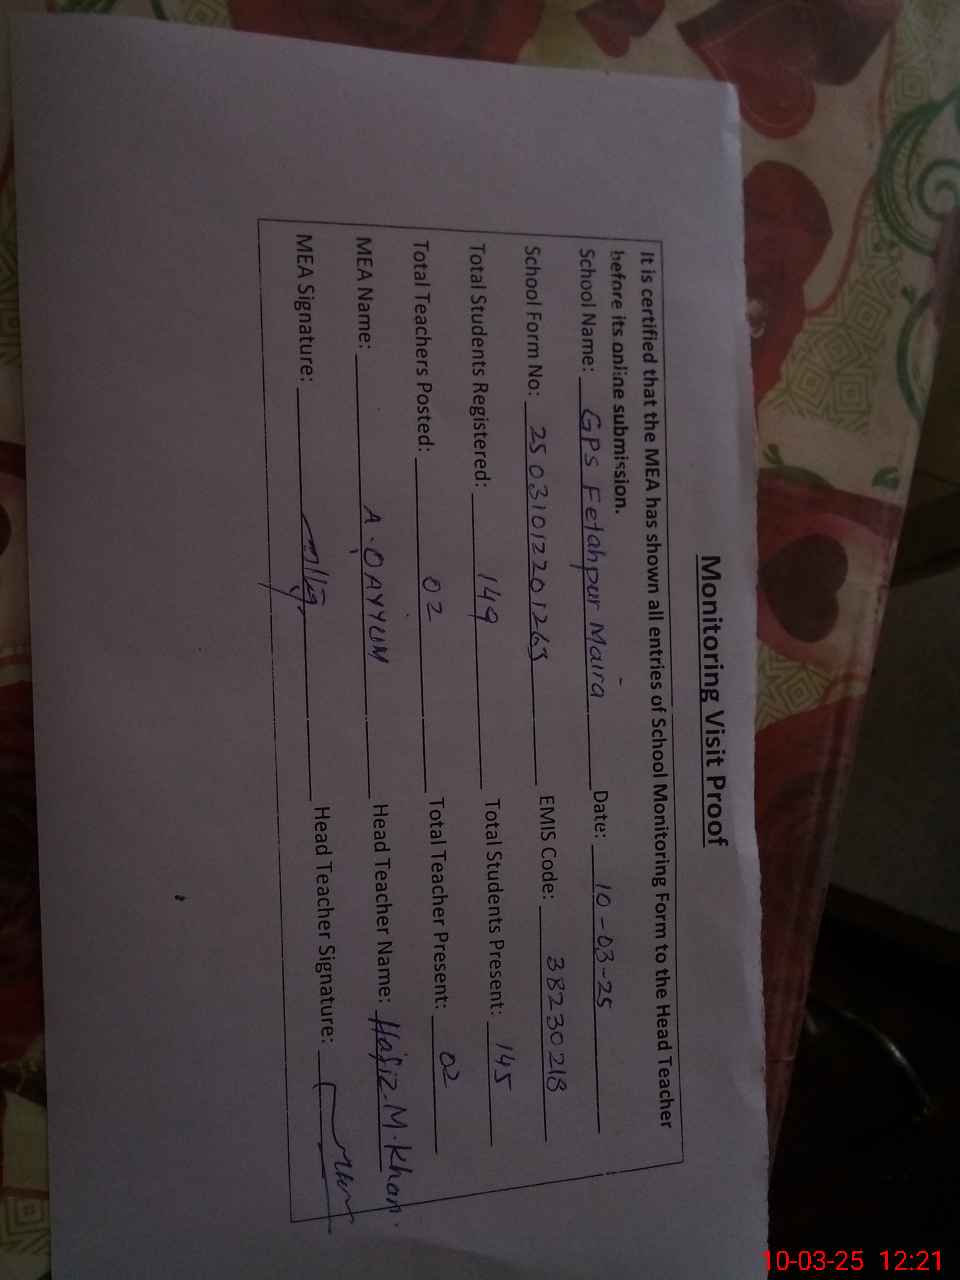 Monitoring Visit Proof
It is certified that the MEA has shown all entries of School Monitoring Form to the Head Teacher
before its online submission.
School Name: GPS Fetahpur Maira Date: 10-03-25
School Form No: 2503101220126 EMIS Code: 38230218
Total Students Registered: 149 Total Students Present: 145
Total Teachers Posted: 02 Total Teacher Present: 02
MEA Name: A.QAYYUM Head Teacher Name: Hafiz.M.Khan.
MEA Signature: Head Teacher Signature:
10-03-25 12:21